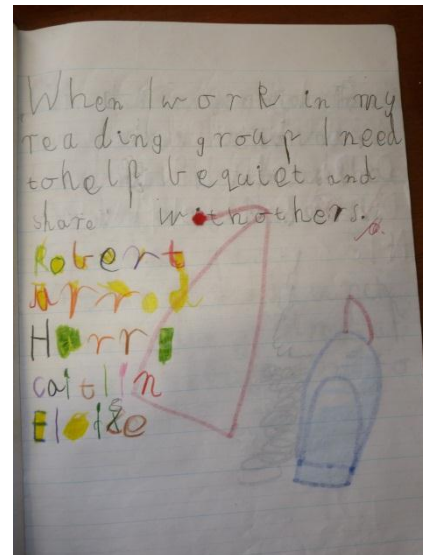 When I work in my
reading group I need
to help be quiet and
share with others.
Robert
Jarrod
Harry
caitlin
Eloise